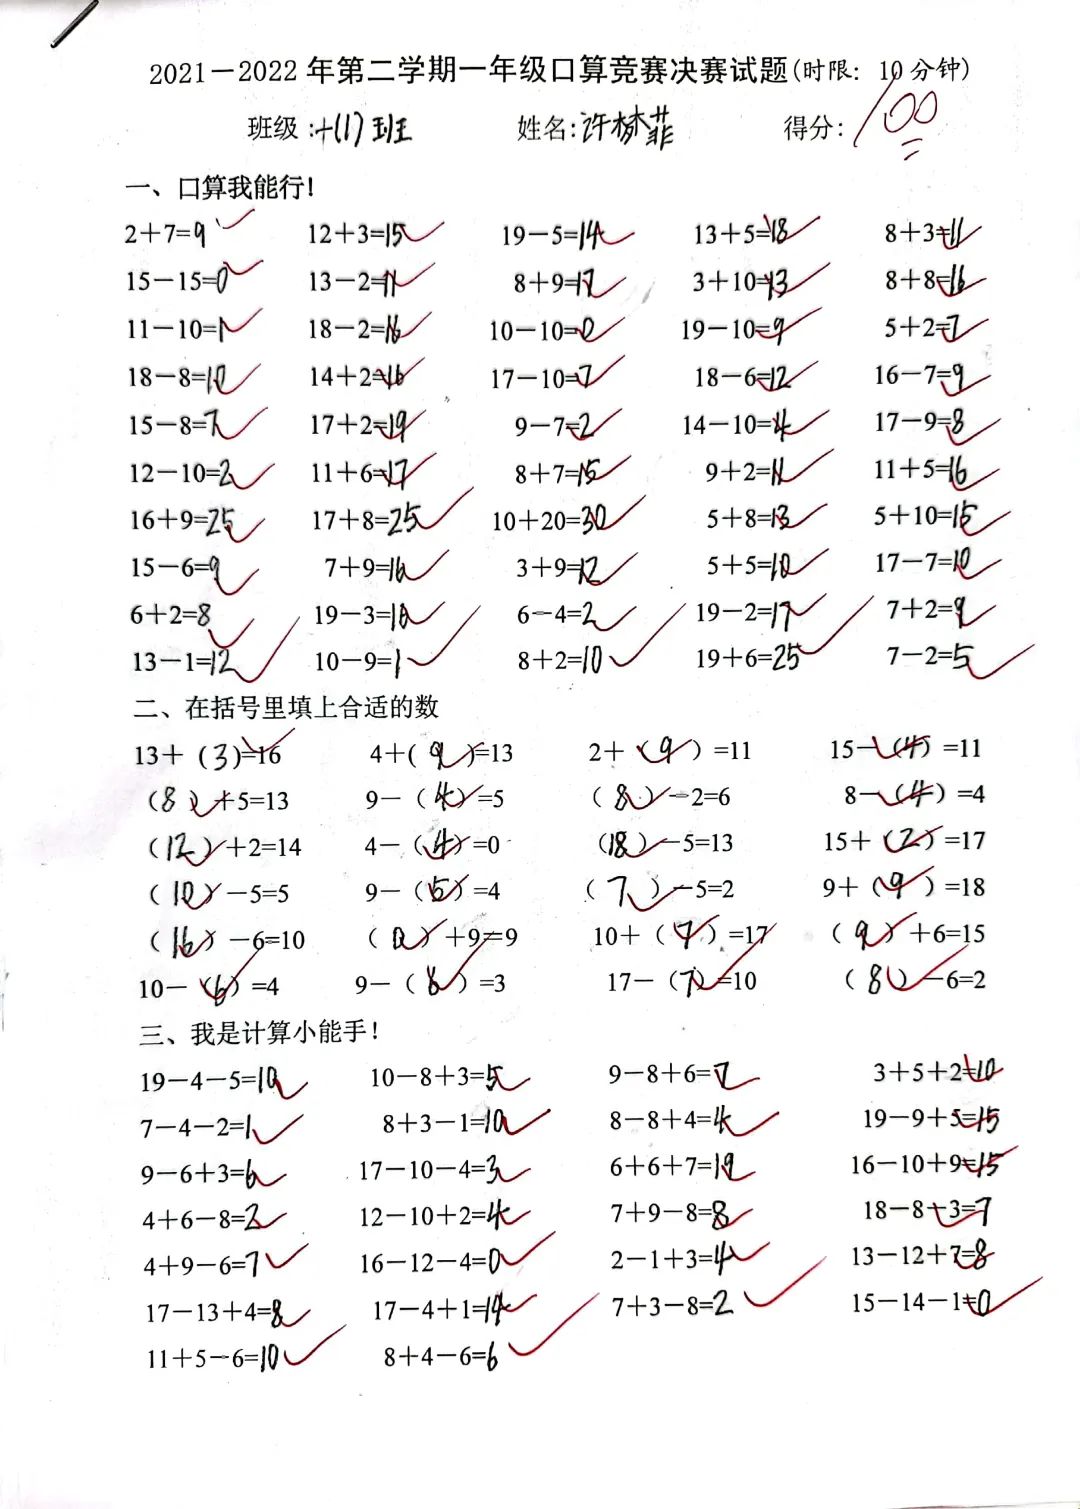 2021-2022年第二学期一年级口算竞赛决赛试题(时限：10分钟)
班级：一(1)班 姓名：许梦菲 得分：100
一、口算我能行！
2+7=9 12+3=15 19-5=14 13+5=18 8+3=11
15-15=0 13-2=11 8+9=17 3+10=13 8+8=16
11-10=1 18-2=16 10-10=0 19-10=9 5+2=7
18-8=10 14+2=16 17-10=7 18-6=12 16-7=9
15-8=7 17+2=19 9-7=2 14-10=4 17-9=8
12-10=2 11+6=17 8+7=15 9+2=11 11+5=16
16+9=25 17+8=25 10+20=30 5+8=13 5+10=15
15-6=9 7+9=16 3+9=12 5+5=10 17-7=10
6+2=8 19-3=16 6-4=2 19-2=17 7+2=9
13-1=12 10-9=1 8+2=10 19+6=25 7-2=5
二、在括号里填上合适的数
13+(3)=16 4+(9)=13 2+(9)=11 15-(4)=11
(8)+5=13 9-(4)=5 (8)-2=6 8-(4)=4
(12)+2=14 4-(4)=0 (18)-5=13 15+(2)=17
(10)-5=5 9-(5)=4 (7)-5=2 9+(9)=18
(16)-6=10 (0)+9=9 10+(7)=17 (9)+6=15
10-(6)=4 9-(6)=3 17-(7)=10 (8)-6=2
三、我是计算小能手！
19-4-5=10 10-8+3=5 9-8+6=7 3+5+2=10
7-4-2=1 8+3-1=10 8-8+4=4 19-9+5=15
9-6+3=6 17-10-4=3 6+6+7=19 16-10+9=15
4+6-8=2 12-10+2=4 7+9-8=8 18-8+3=7
4+9-6=7 16-12-4=0 2-1+3=4 13-12+7=8
17-13+4=8 17-4+1=14 7+3-8=2 15-14-1=0
11+5-6=10 8+4-6=6